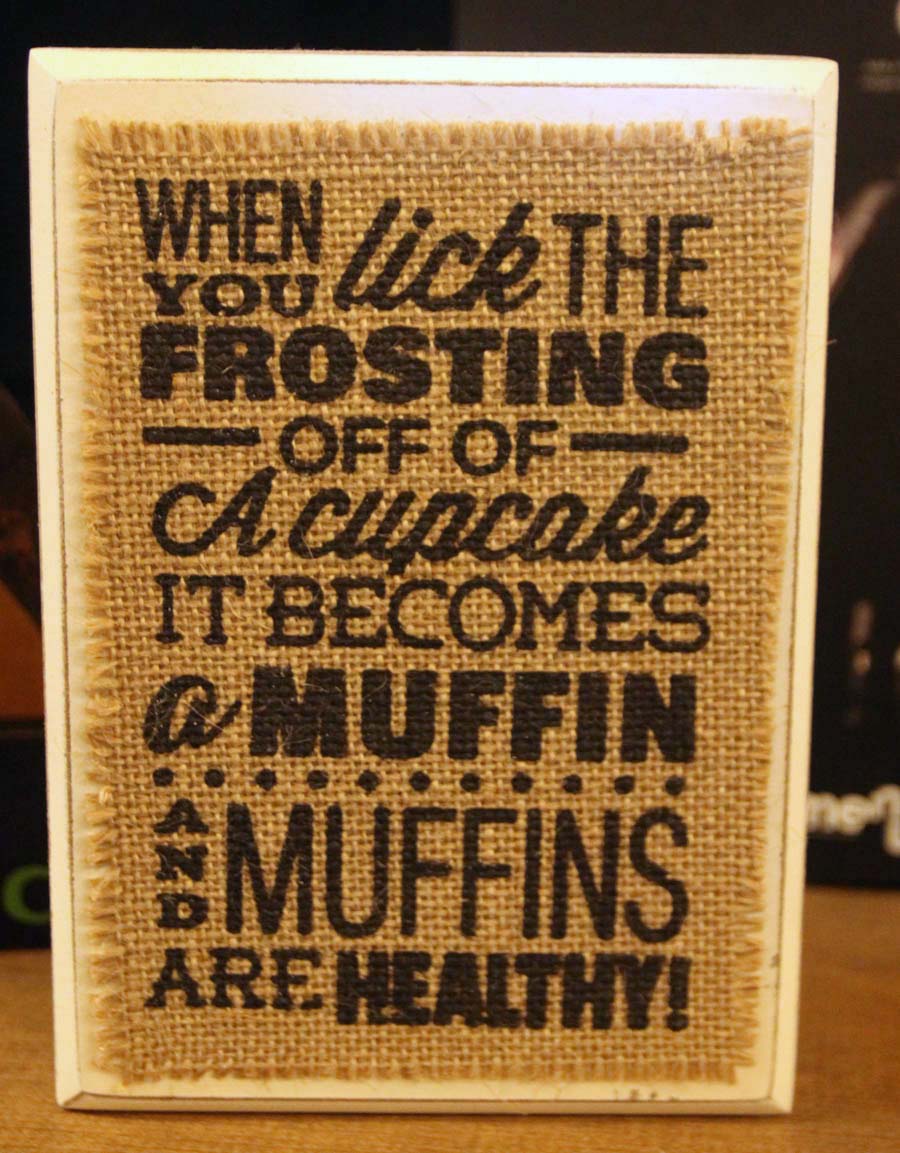 WHEN
YOU lick THE
FROSTING
OFF OF
A cupcake
IT BECOMES
a MUFFIN
AND MUFFINS
ARE HEALTHY!